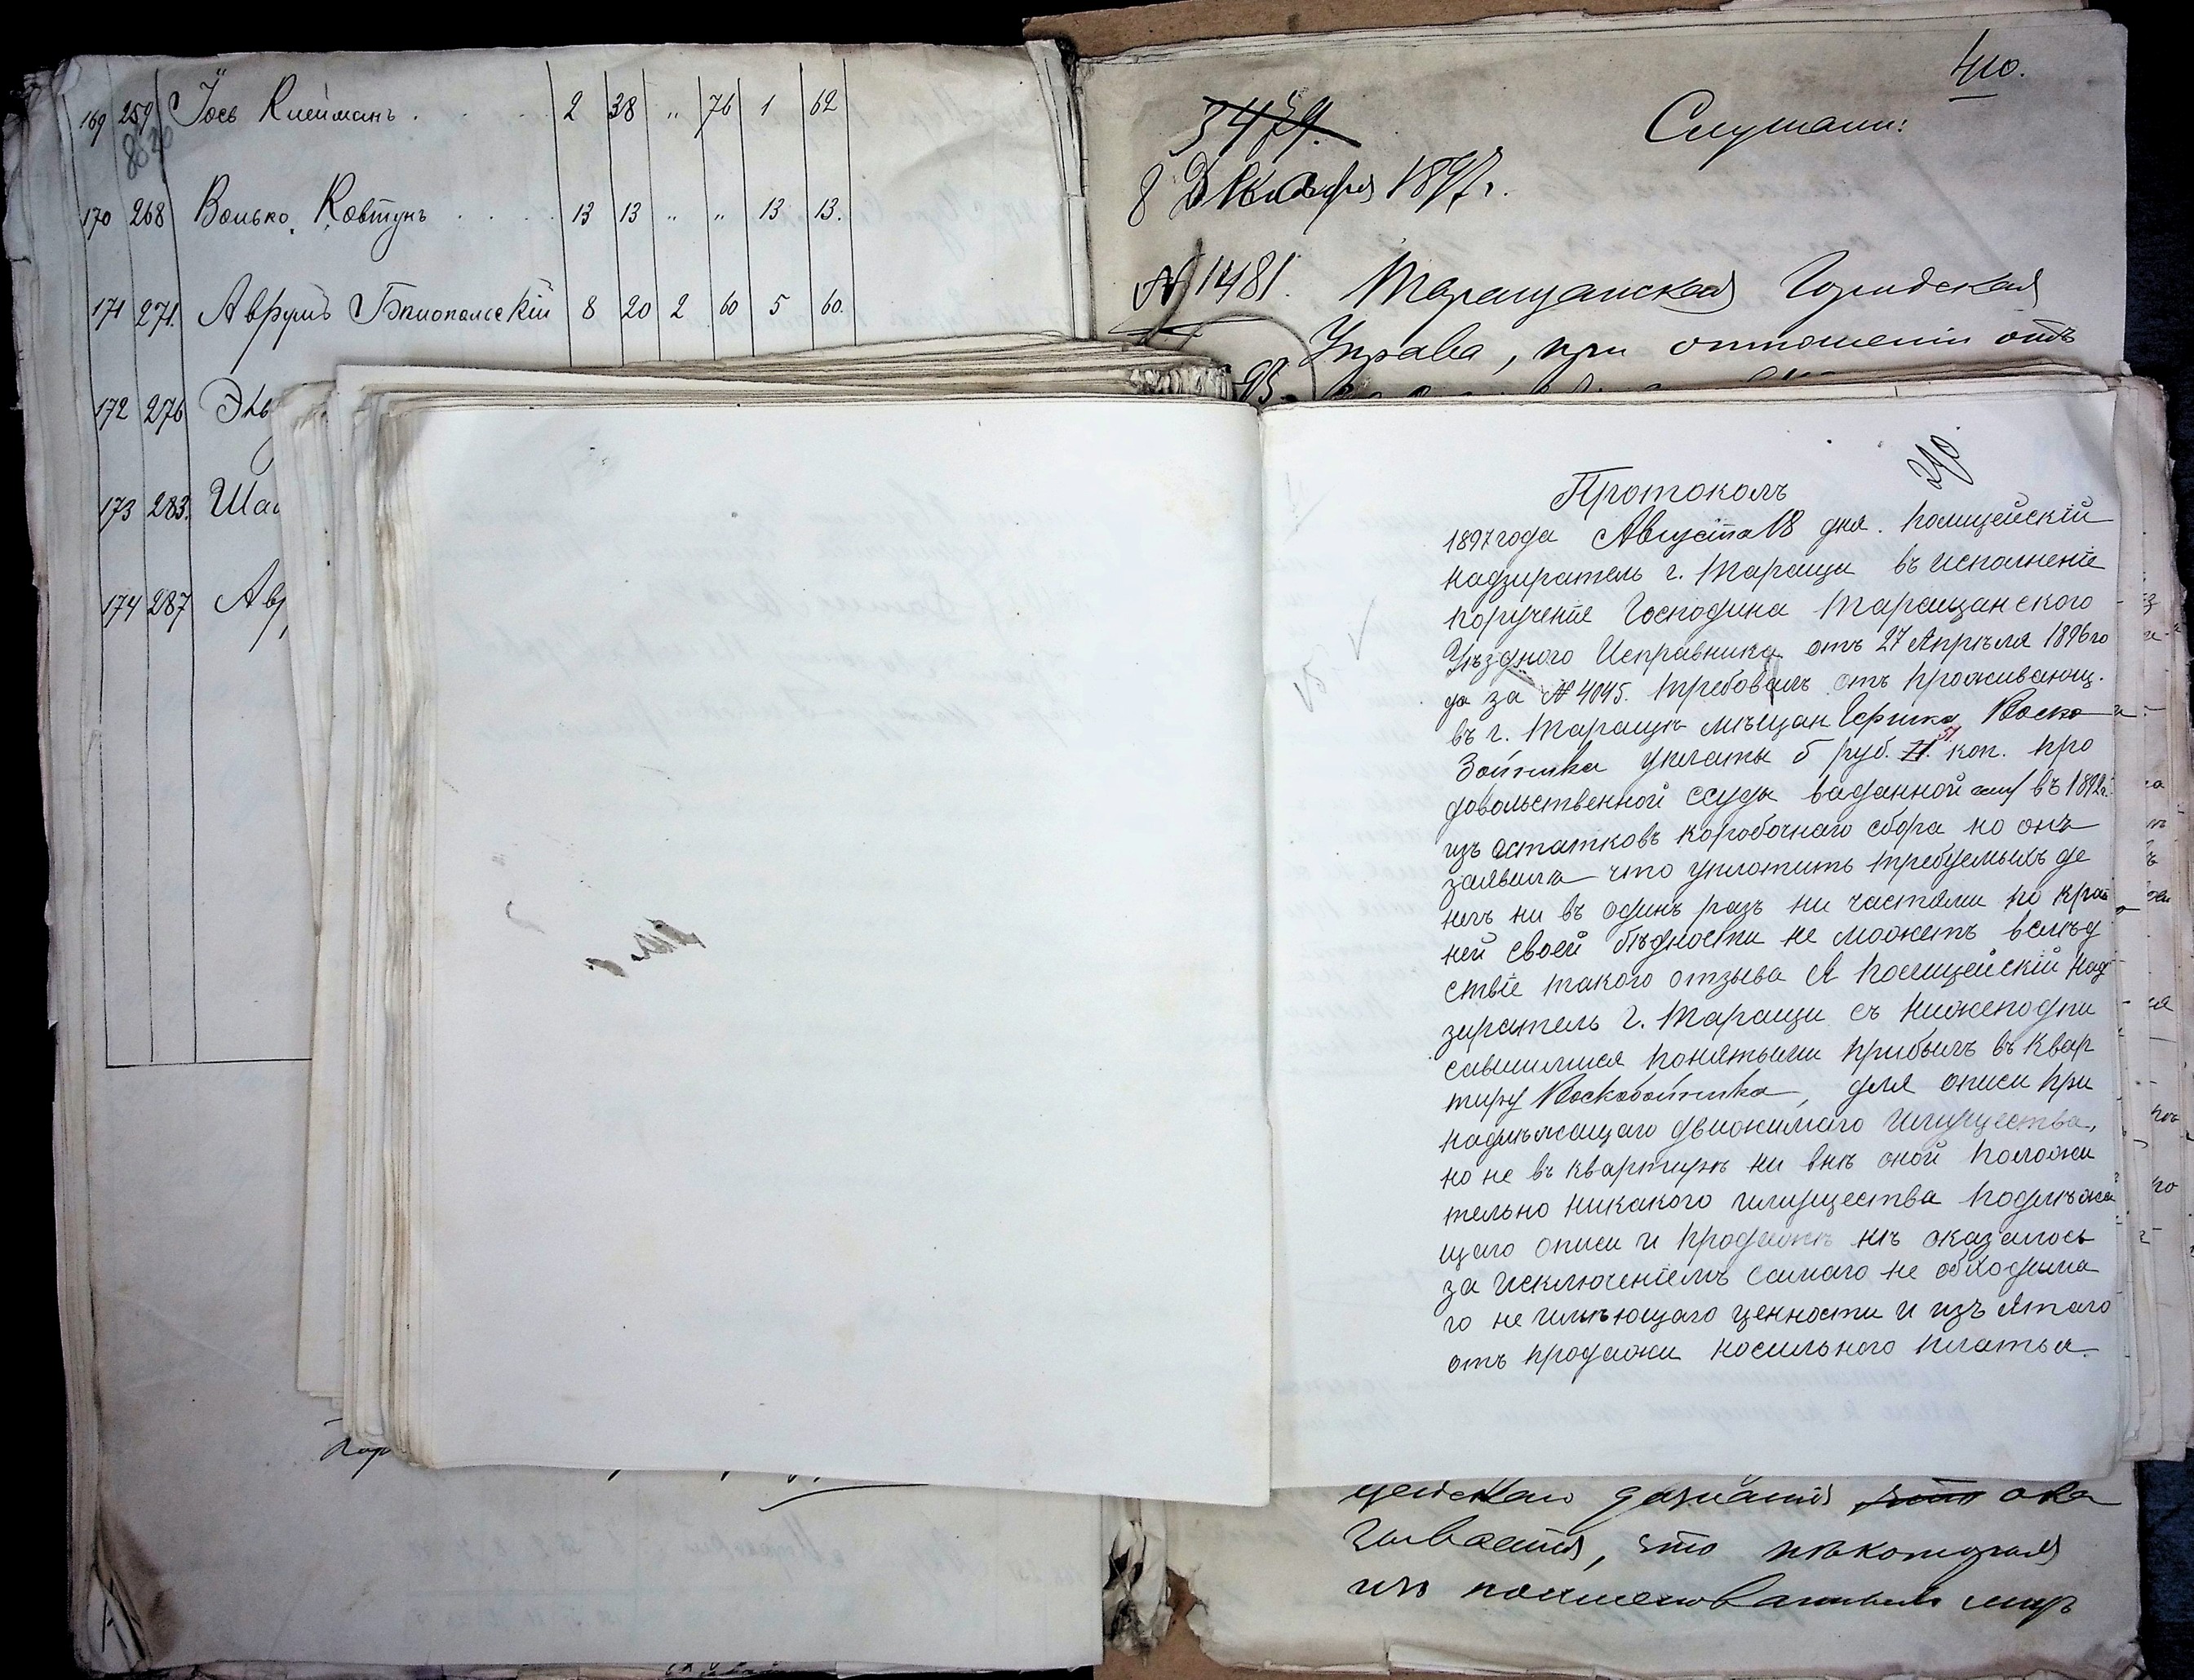 169 259 Іось Клейманъ . . . . 2 38 „ 76 1 62
170 268 Волько Ковтунъ . . . . 13 13 „ „ 13 13.
171 271. Аврумъ Бѣлопольскій 8 20 2 60 5 60.
172 276
173 283.
174 287
410.
3479.
Слушали:
8 Декабря 1897 г.
№ 1481. Таращанская Городская
Управа, при отношеніи отъ
93.
Протоколъ
1897 года Августа 18 дня. Полицейскій
надзиратель г. Таращи въ исполненіе
порученіе Господина Таращанского
Уѣздного Исправника отъ 27 Апрѣля 1896 го
да за № 4045. требовалъ отъ проживающ.
въ г. Таращѣ мѣщан Воско
бойника уплаты 5 руб. 51 коп. про
довольственной ссуды ваданной ему въ 1892 г.
изъ астатковъ коробочнаго сбора но онъ
заявилъ что уплатить требуемыхъ де
негъ ни въ одинъ разъ ни частями по край
ней своей бѣдности не можетъ велѣд
ствіе такого отзыва Я Полицейскій Над
зиратель г. Таращи съ нижеподпи
савшимися понятыми прибылъ въ Квар
тиру Воскобойника, для описи при
надлѣжащаго движимаго имущества,
но не въ квартирѣ ни внѣ оной положи
тельно никакого имущества подлѣжа
щаго описи и продажѣ нѣ оказалось
за исключеніемъ самаго не обходима
го не имѣющаго ценности и изъ ятаго
отъ продажи носильного платья.
цейскаго дознанія что ока
зывается, что нѣкоторыя
изъ поименованныхъ